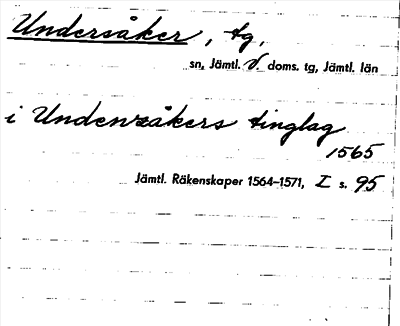 Undersåker, tg,
sn, Jämtl. V. doms. tg, Jämtl. län
i Undenråkers tinglag
1565
Jämtl. Räkenskaper 1564–1571, I s. 95